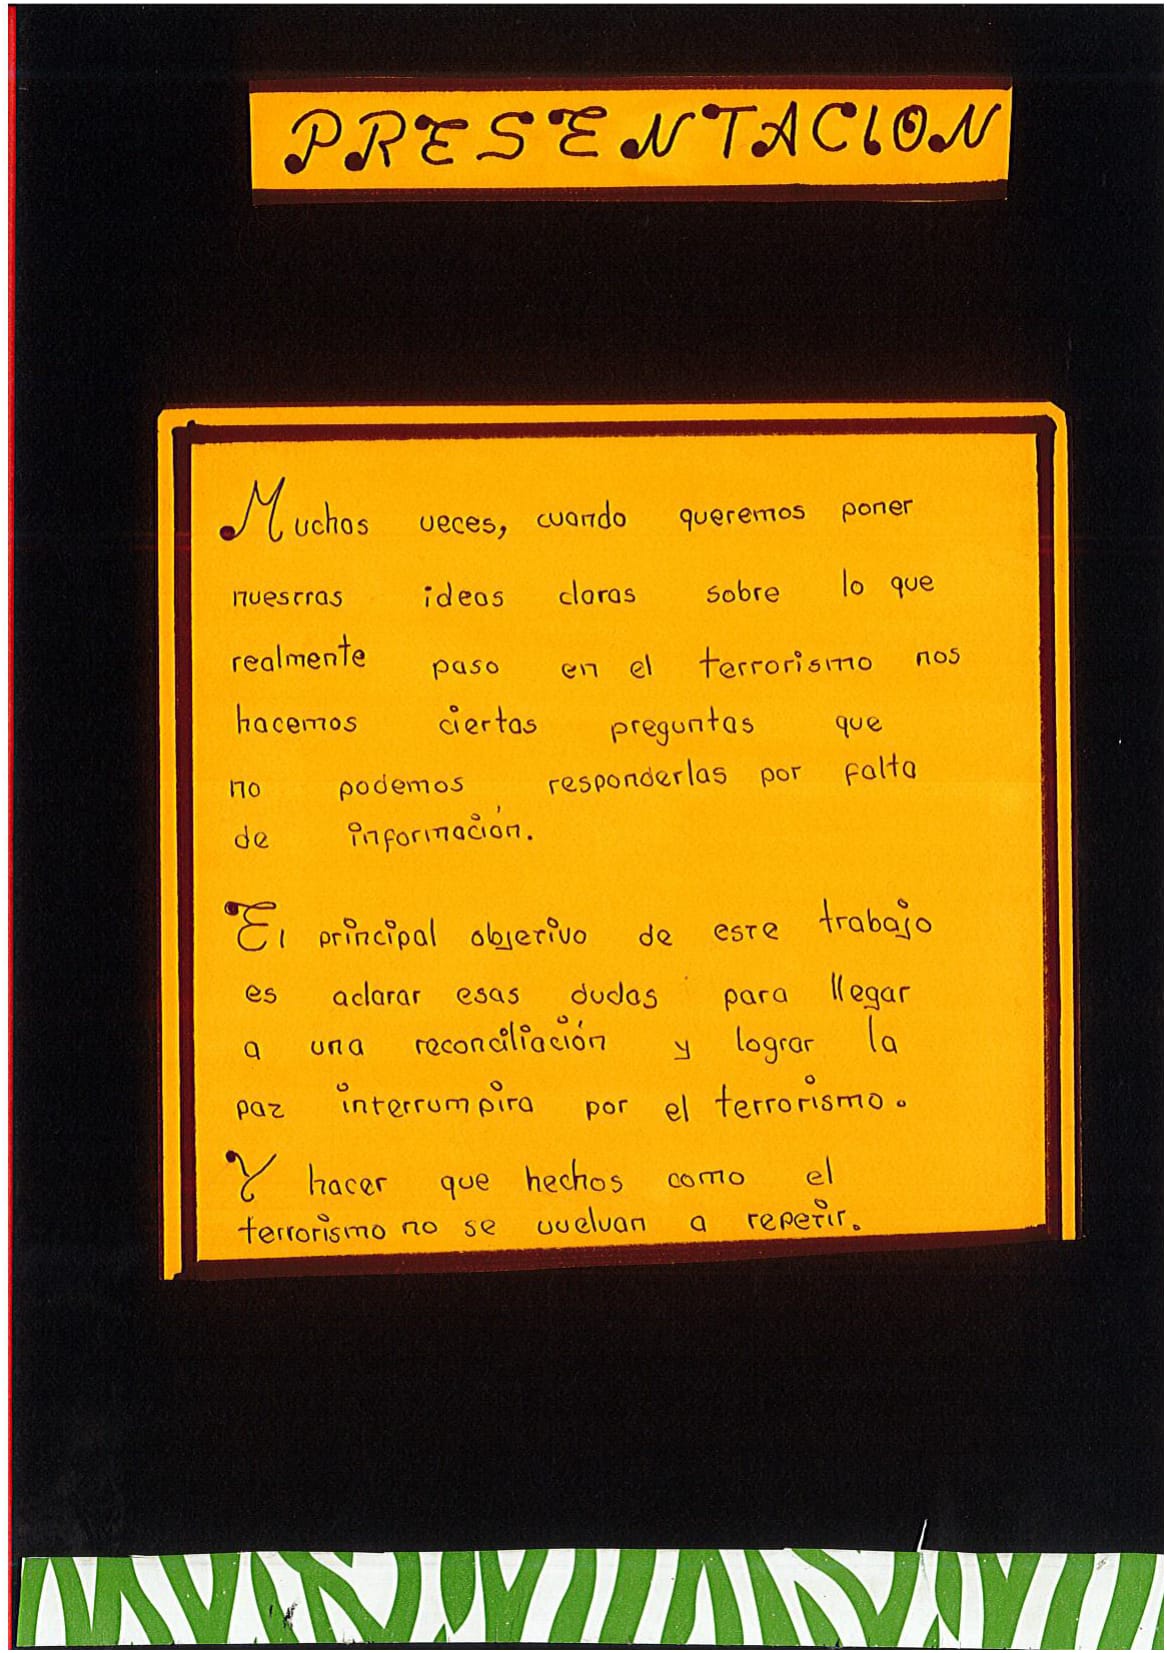 PRESENTACION
Muchas veces, cuando queremos poner
nuestras ideas claras sobre lo que
realmente paso en el terrorismo nos
hacemos ciertas preguntas que
no podemos responderlas por falta
de información.
El principal objetivo de este trabajo
es aclarar esas dudas para llegar
a una reconciliación y lograr la
paz interrumpida por el terrorismo.
Y hacer que hechos como el
terrorismo no se vuelvan a repetir.